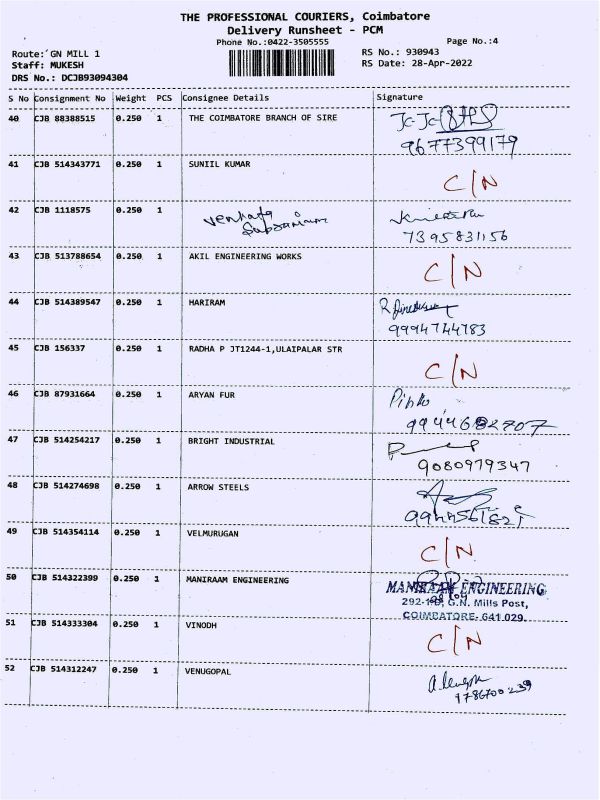 THE PROFESSIONAL COURIERS, Coimbatore
Delivery Runsheet - PCM
Phone No.:0422-3505555 Page No.:4
Route: GN MILL 1 RS No.: 930943
Staff: MUKESH RS Date: 28-Apr-2022
DRS No.: DCJB93094304
S No Consignment No Weight PCS Consignee Details Signature
40 CJB 88388515 0.250 1 THE COIMBATORE BRANCH OF SIRE
9677399179
41 CJB 514343771 0.250 1 SUNIIL KUMAR C/N
42 CJB 1118575 0.250 1
7395831156
43 CJB 513788654 0.250 1 AKIL ENGINEERING WORKS C/N
44 CJB 514389547 0.250 1 HARIRAM
9994744783
45 CJB 156337 0.250 1 RADHA P JT1244-1,ULAIPALAR STR C/N
46 CJB 87931664 0.250 1 ARYAN FUR
47 CJB 514254217 0.250 1 BRIGHT INDUSTRIAL
9080979347
48 CJB 514274698 0.250 1 ARROW STEELS
49 CJB 514354114 0.250 1 VELMURUGAN C/N
50 CJB 514322399 0.250 1 MANIRAAM ENGINEERING MANIRAAM ENGINEERING
G.N. Mills Post,
COIMBATORE- 641 029.
51 CJB 514333304 0.250 1 VINODH C/N
52 CJB 514312247 0.250 1 VENUGOPAL